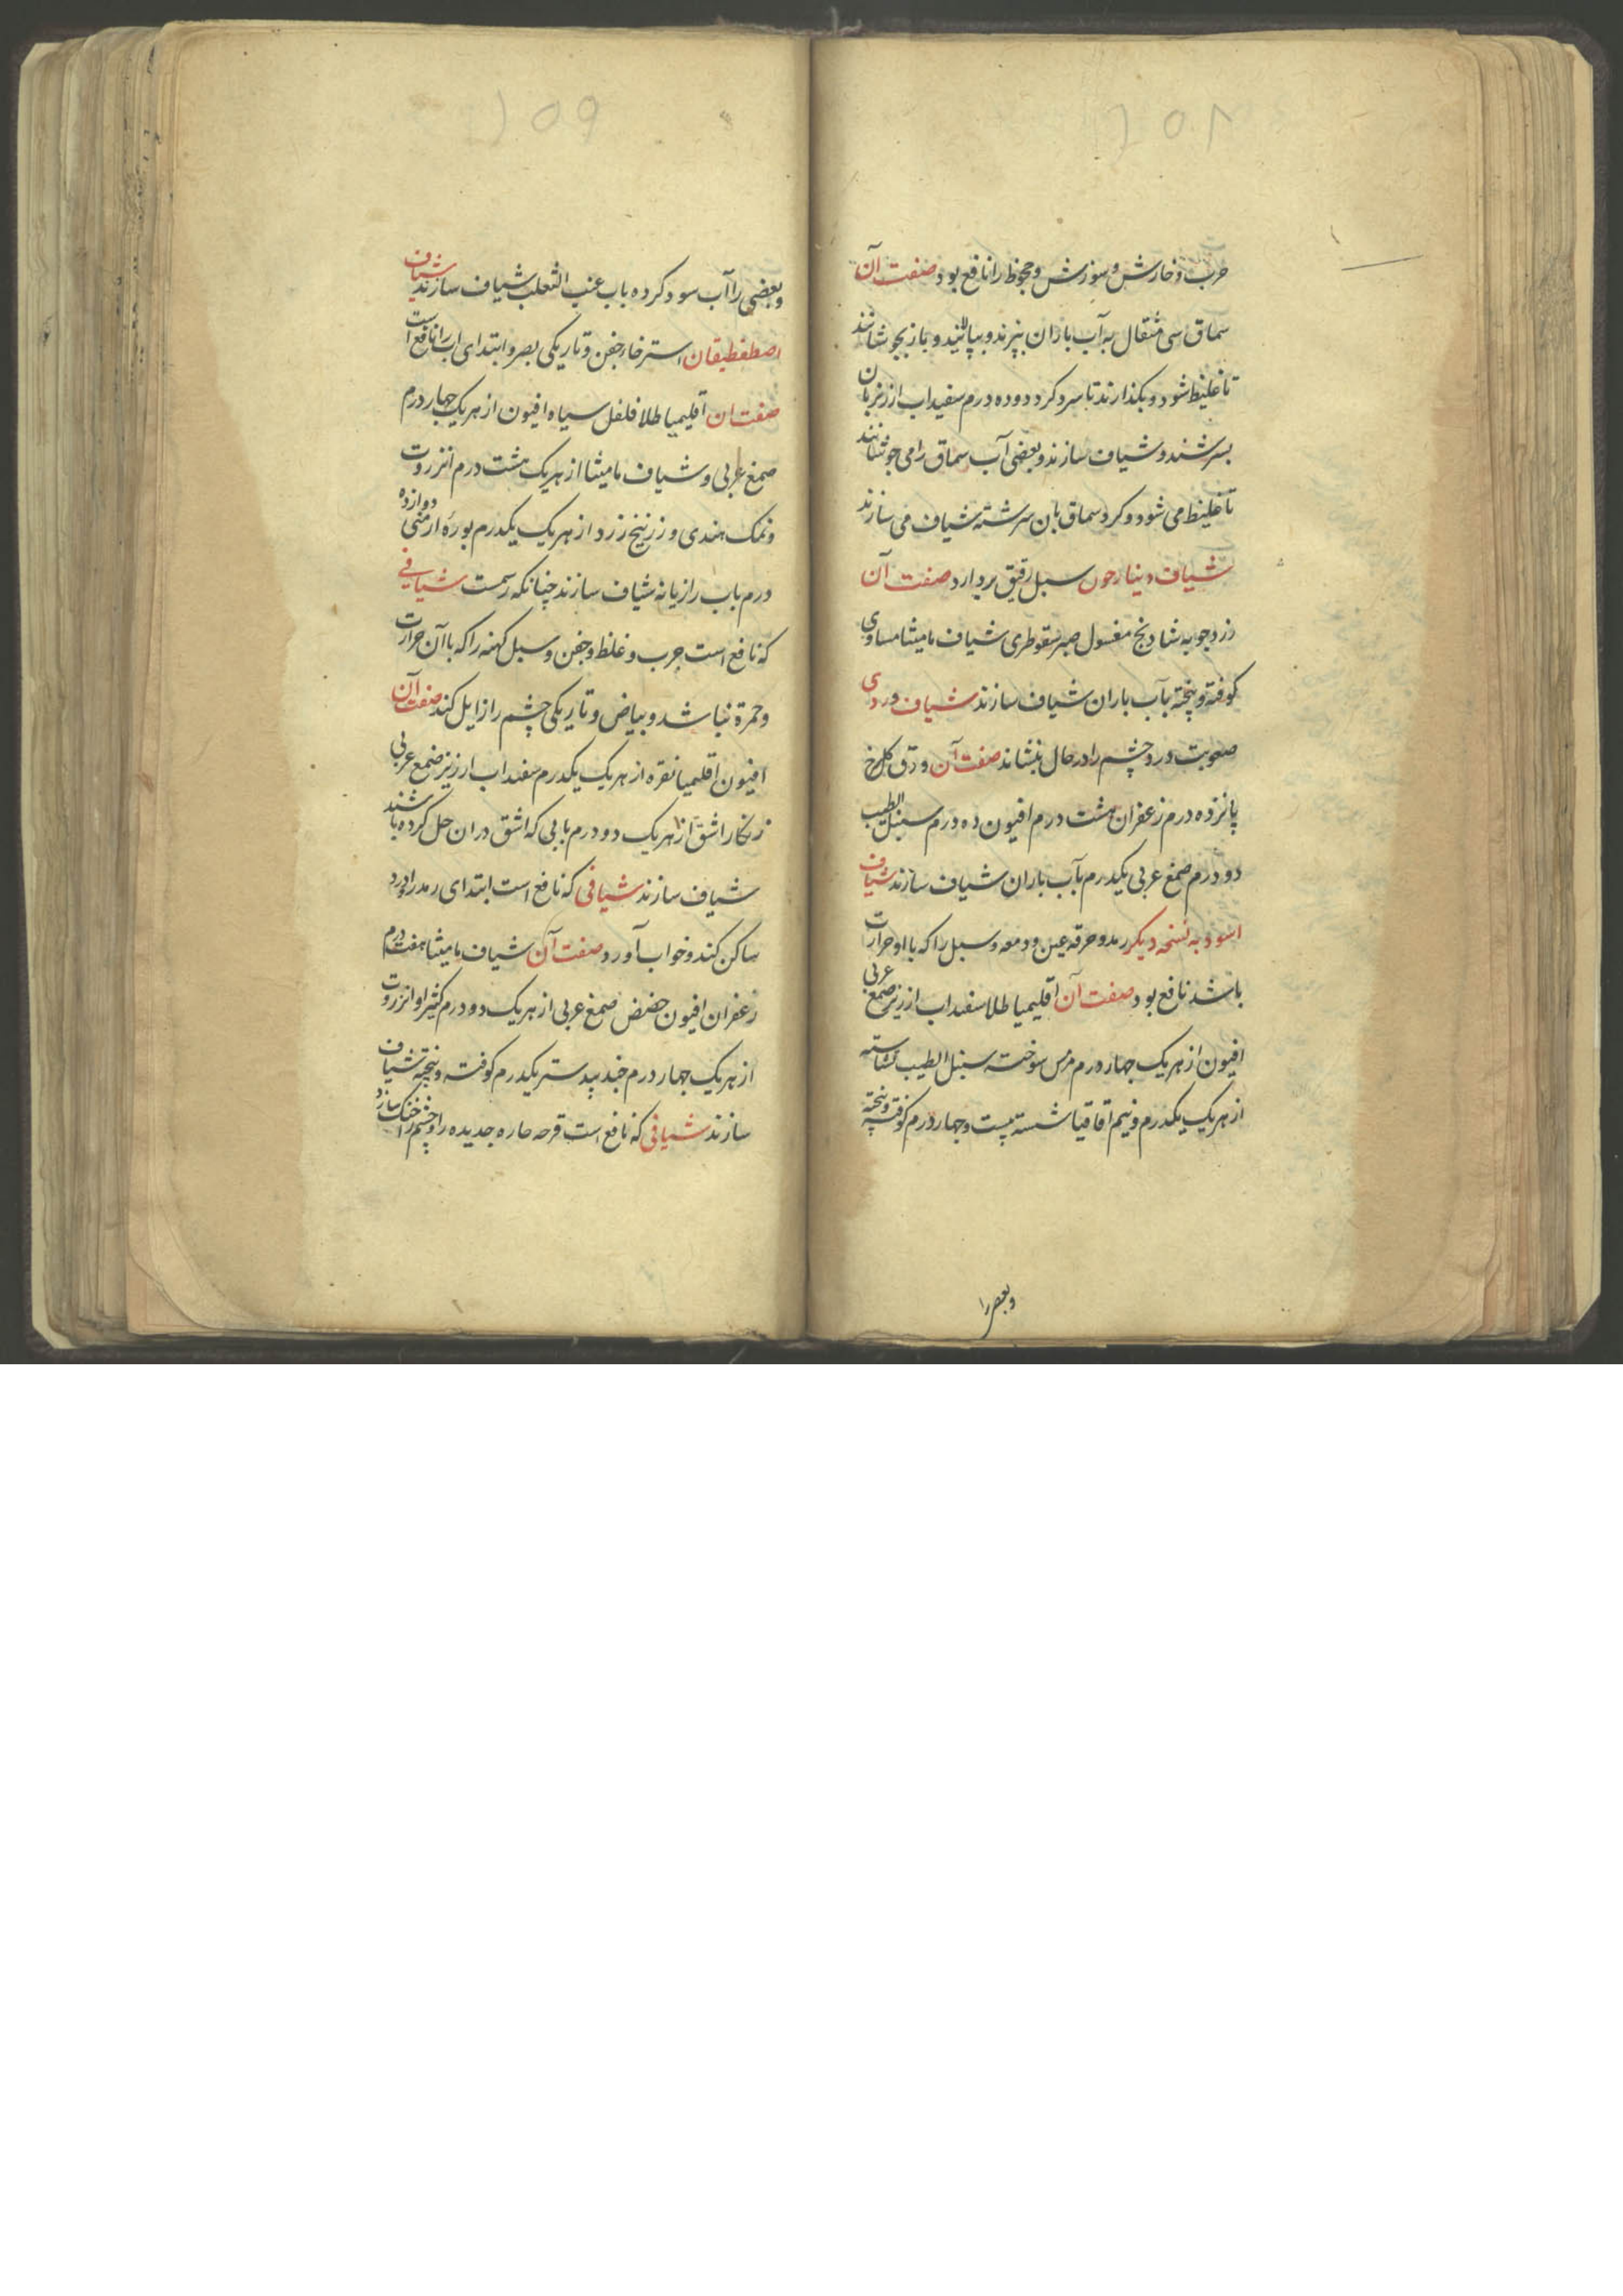 ۲۵۸
جرب و خارش و سوزش و جحوظ را نافع بود صفت آن
سماق سی مثقال به آب باران بپزند و بپالایند و باز بجوشانند
تا غلیظ شود و بکذارند تا سرد کردد و ده درم سفیداب ارزیز بان
بسرشند و شیاف سازند و بعضی آب سماق را می جوشانند
تا غلیظ می شود و کرد سماق بان سرشته شیاف می سازند
شیاف دینارجون سبل رقیق بردارد صفت آن
زردجوبه شادنج مغسول صبر سقوطری شیاف مامیثا مساوی
کوفته و پخته بآب باران شیاف سازند شیاف وردی
صعوبت درد چشم را در حال بنشاند صفت آن ورق کل سرخ
پانزده درم زعفران هشت درم افیون ده درم سنبل الطیب
دو درم صمغ عربی یکدرم بآب باران شیاف سازند شیاف
اسود به نسخه دیکر رمد و حرقه عین و دمعه و سبل را که با او حرارت
باشد نافع بود صفت آن اقلیمیا طلا سفیداب ارزیز صمغ عربی
افیون از هر یک جهار درم مس سوخته سنبل الطیب نشاسته
از هر یک یکدرم و نیم اقاقیا شسته بیست و جهار درم کوفته و پخته
و بعضی را
۲۵۹
و بعضی را آب سود کرده باب عنب الثعلب شیاف سازند شیاف
اصطفطیقان استرخا جفن و تاریکی بصر و ابتدای اب را نافع است
صفت ان اقلیمیا طلا فلفل سیاه افیون از هر یک جهار درم
صمغ عربی و شیاف مامیثا از هر یک هشت درم انزروت
و نمک هندی و زرنیخ زرد از هر یک یکدرم بوره ارمنی دوازده
درم باب رازیانه شیاف سازند چنانکه رسمست شیافی
که نافع است جرب و غلظ و جفن و سبل کهنه را که با آن حرارت
و حمرة نباشد و بیاض و تاریکی چشم را زایل کند صفت آن
افیون اقلیمیا نقره از هر یک یکدرم سفیداب ارزیز صمغ عربی
زنکار اشق از هر یک دو درم بابی که اشق دران حل کرده باشند
شیاف سازند شیافی که نافع است ابتدای رمد را و درد
ساکن کند و خواب آورد صفت آن شیاف مامیثا هفت درم
زعفران افیون حضض صمغ عربی از هر یک دو درم کثیرا و انزروت
از هر یک جهار درم جندبیدستر یکدرم کوفته و پخته شیاف
سازند شیافی که نافع است قرحه حاره جدیده را و چشم را خنک سازد